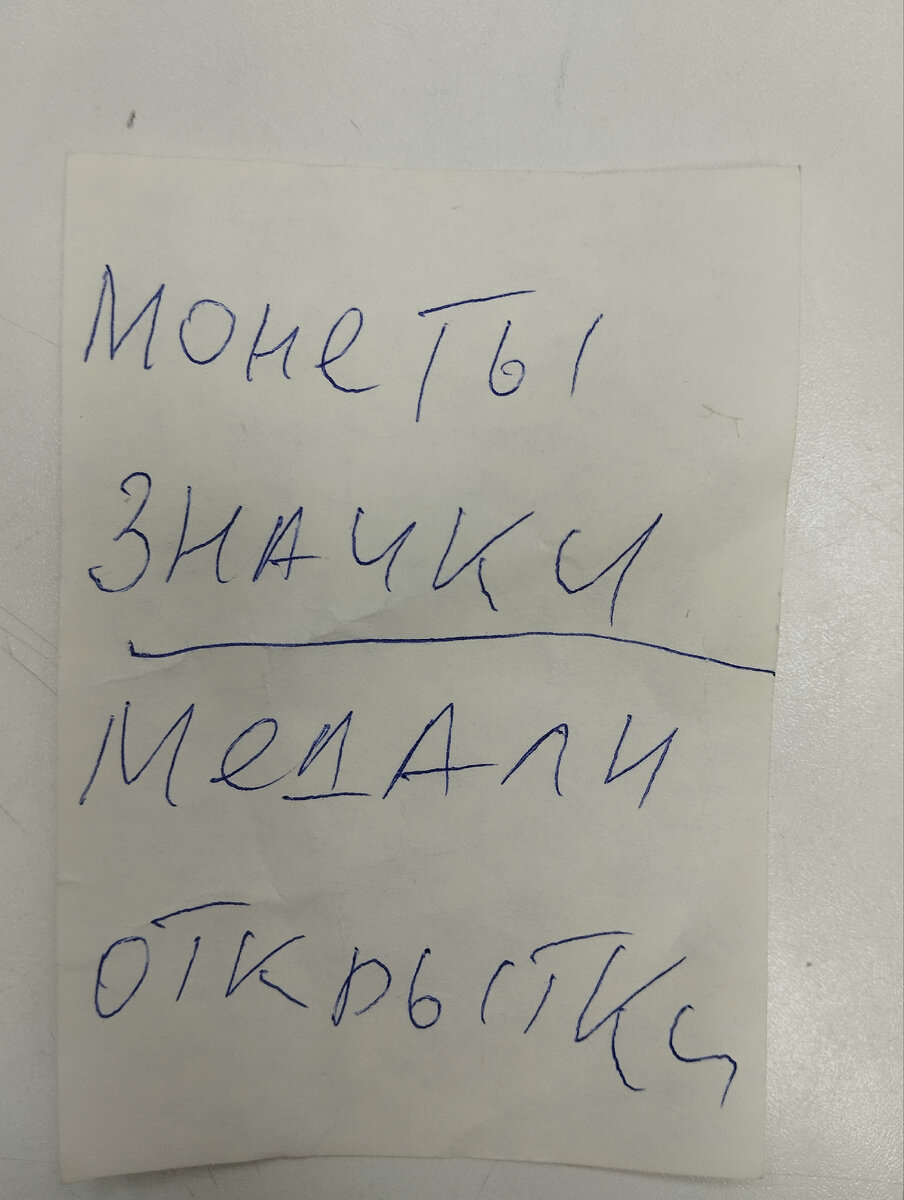 Монеты
Значки
Медали
открытки